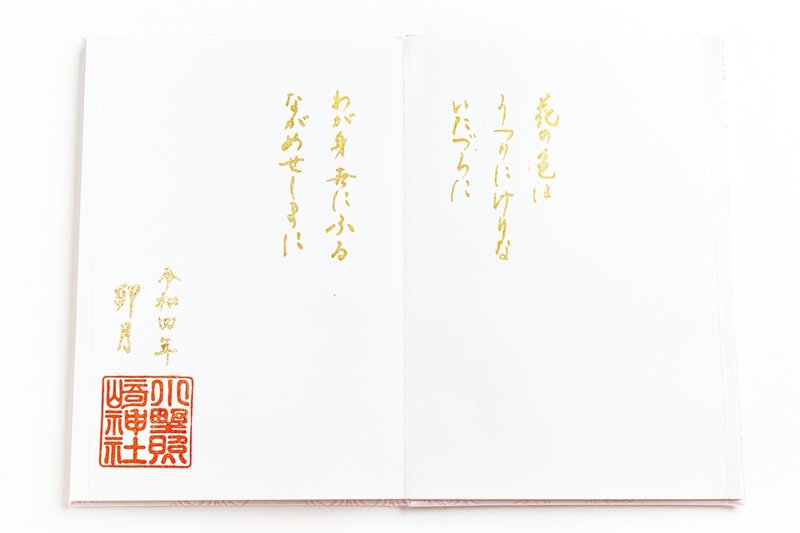 花の色は
うつりにけりな
いたづらに
わが身世にふる
ながめせしまに
令和四年
卯月
小野照
崎神社